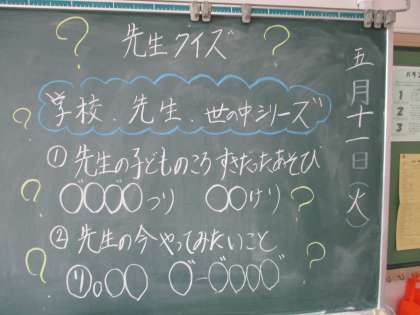 先生クイズ
学校、先生、世の中シリーズ
① 先生の子どものころすきだったあそび
○゛○゛○゛○つり ○○けり
② 先生の今やってみたいこと
り。○○ ○゛ー○゛○○○゛
五月十一日(火)